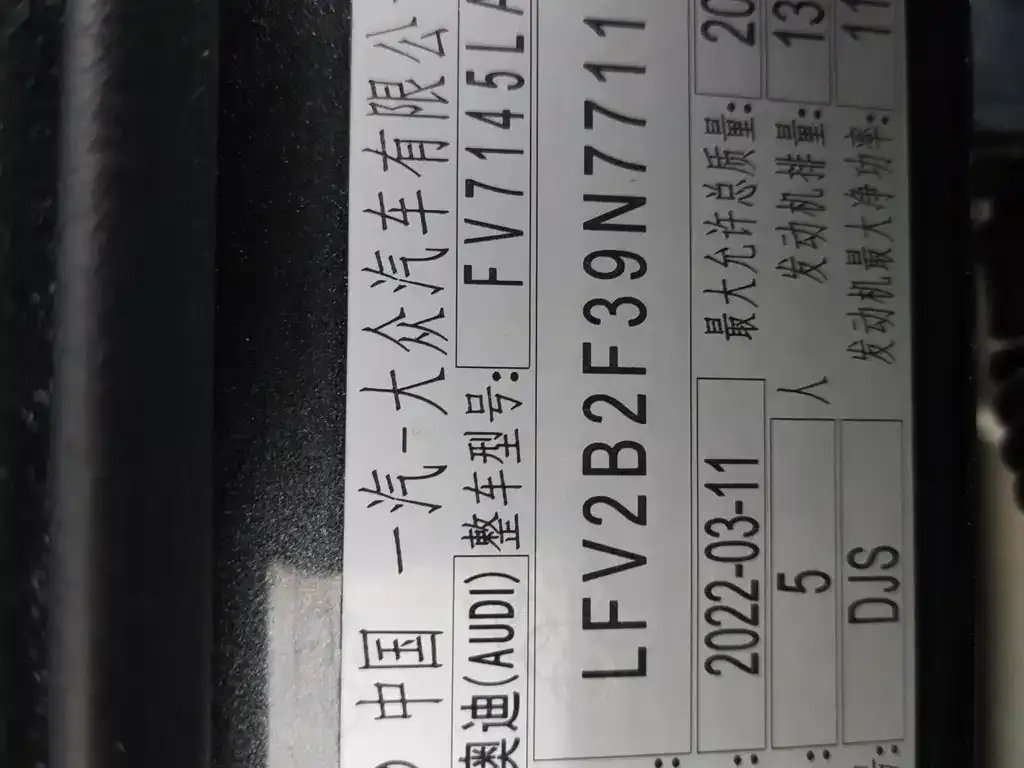 中国 一汽-大众汽车有限公
奥迪(AUDI) 整车型号: FV7145LA
LFV2B2F39N7711
2022-03-11 最大允许总质量: 20
5 人 发动机排量: 13
DJS 发动机最大净功率: 11
号: